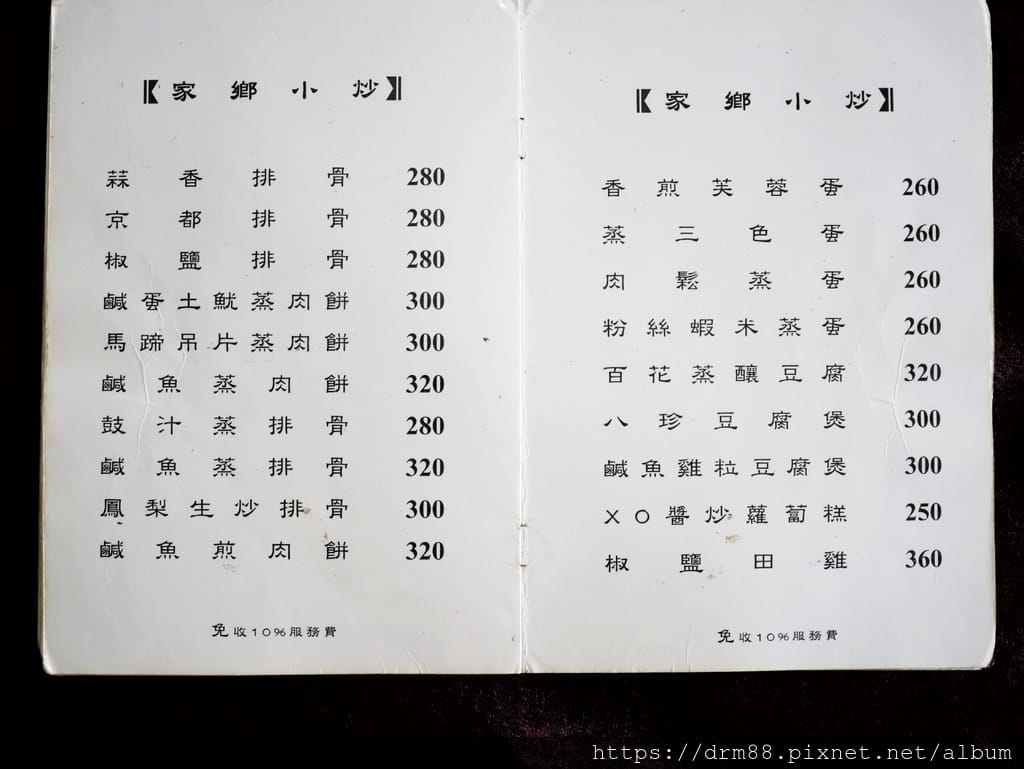 【家鄉小炒】
蒜香排骨 280
京都排骨 280
椒鹽排骨 280
鹹蛋土魷蒸肉餅 300
馬蹄吊片蒸肉餅 300
鹹魚蒸肉餅 320
鼓汁蒸排骨 280
鹹魚蒸排骨 320
鳳梨生炒排骨 300
鹹魚煎肉餅 320
免收10%服務費
【家鄉小炒】
香煎芙蓉蛋 260
蒸三色蛋 260
肉鬆蒸蛋 260
粉絲蝦米蒸蛋 260
百花蒸釀豆腐 320
八珍豆腐煲 300
鹹魚雞粒豆腐煲 300
XO醬炒蘿蔔糕 250
椒鹽田雞 360
免收10%服務費
https://drm88.pixnet.net/album